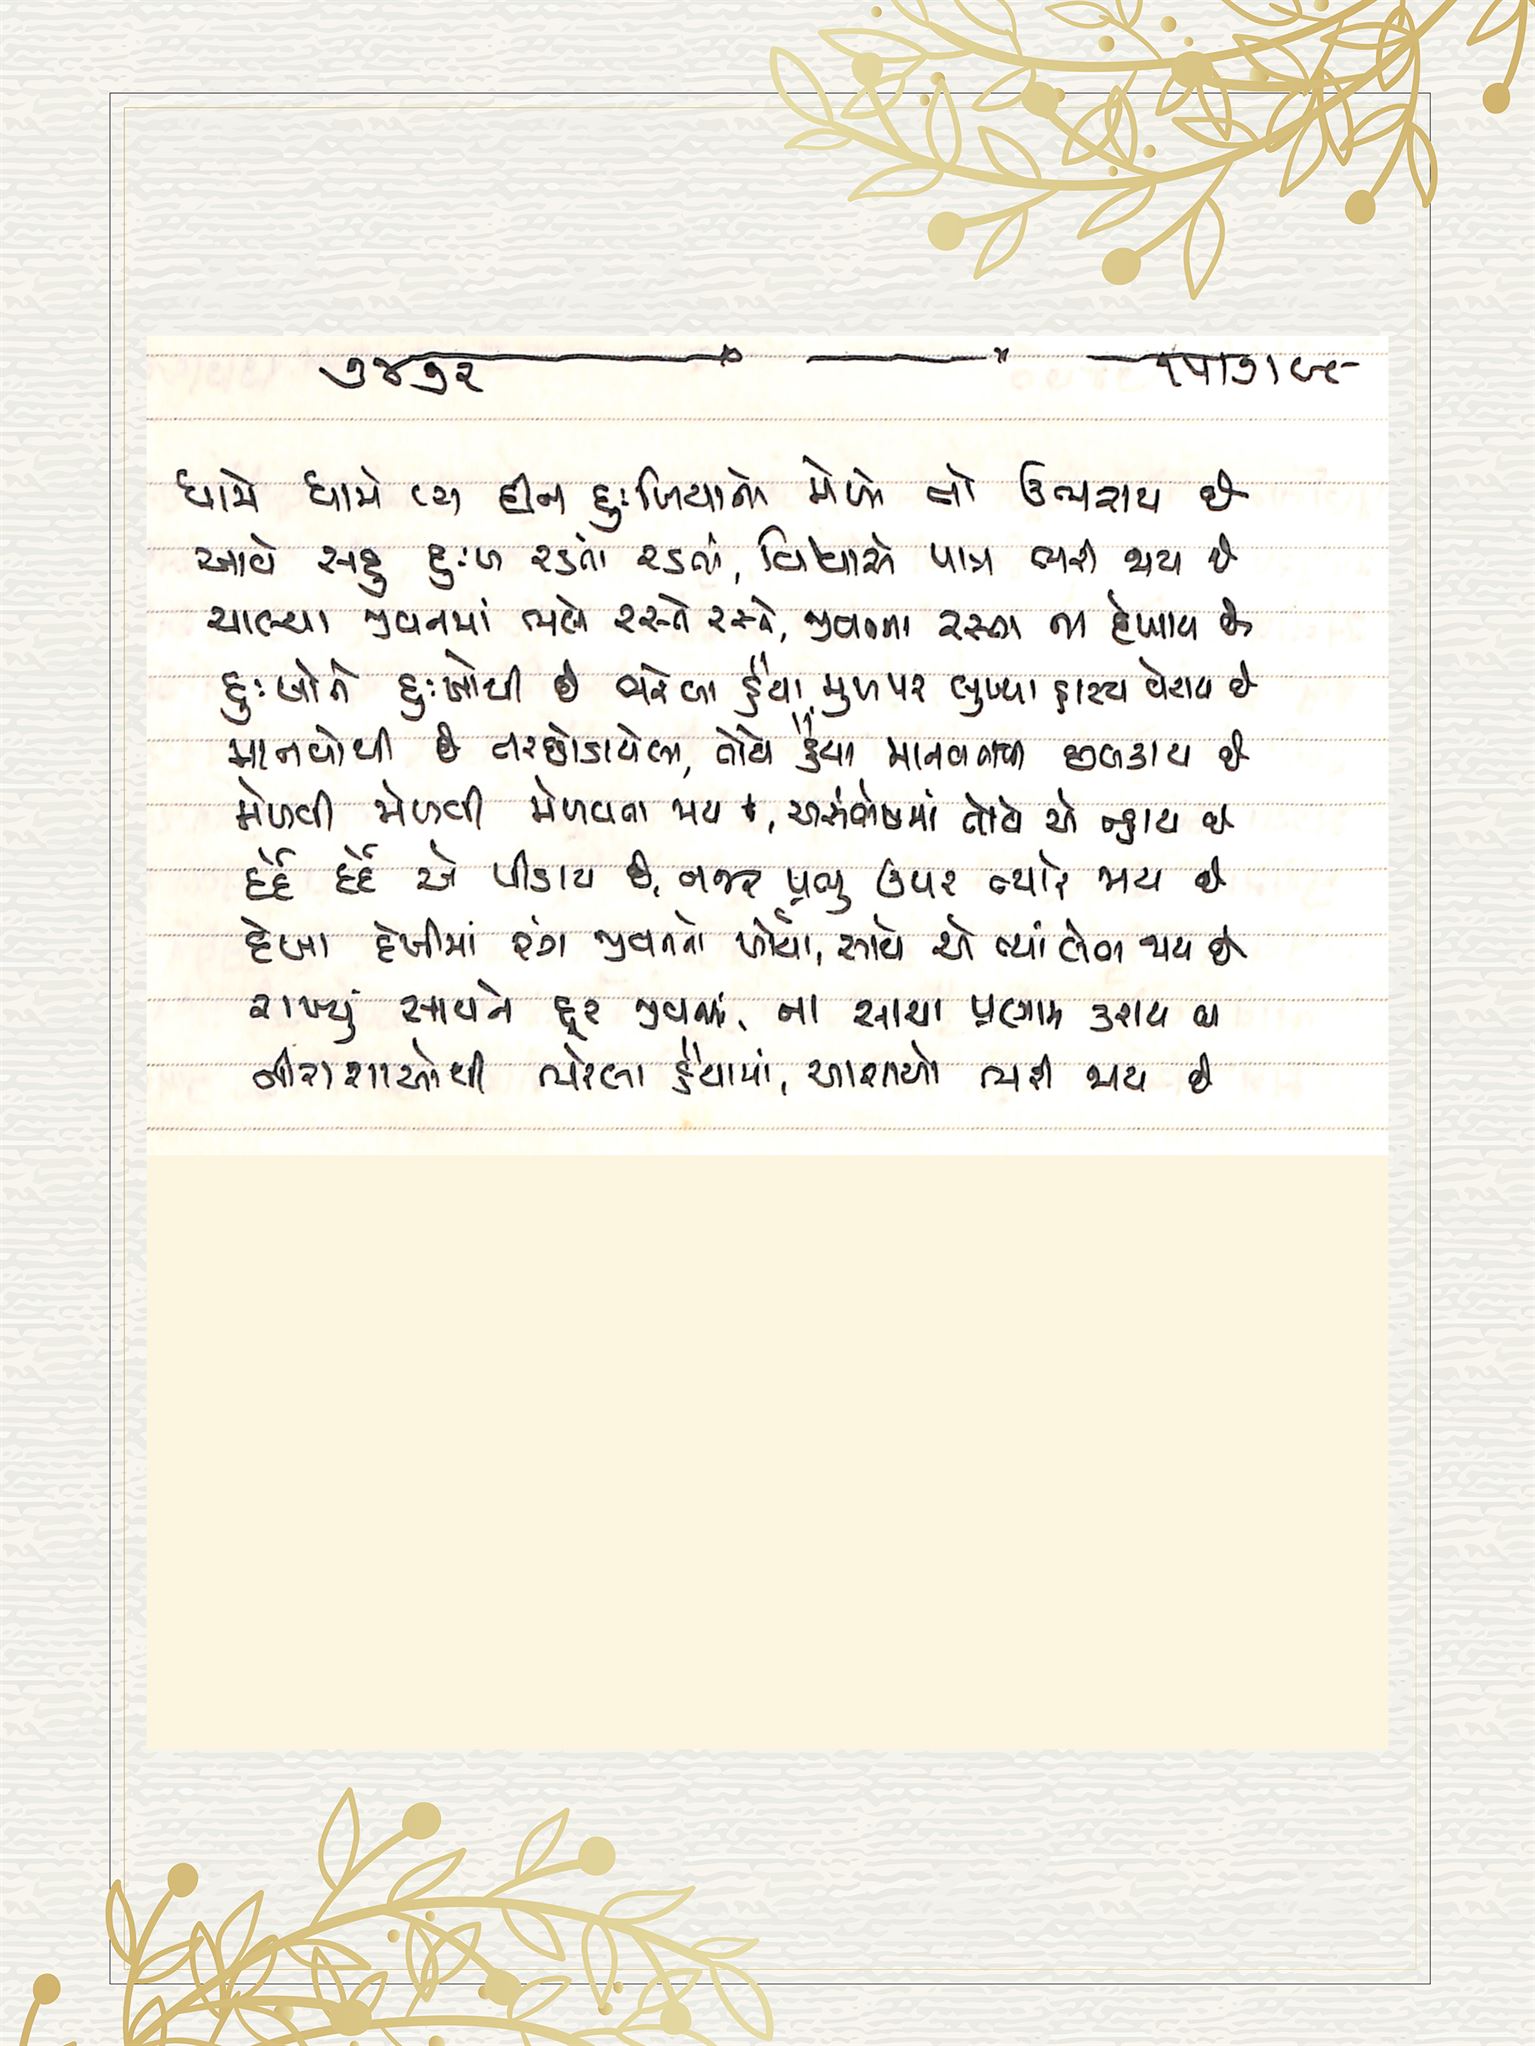 ૭૪૭૨ ૧૫।૭।૯૮
ધામે ધામે તો દીન દુઃખિયાનો મેળો તો ઉભરાય છે
આવે સહુ દુઃખ રડતાં રડતાં, વિશ્વાસે પાત્ર ભરી જાય છે
ચાલ્યા જીવનમાં ભલે રસ્તે રસ્તે, જીવનના રસ્તા ના દેખાય છે
દુઃખોને દુઃખોથી છે ભરેલા હૈંયા, મુખ પર લુખ્ખા હાસ્ય વેરાય છે
માનવોથી છે તરછોડાયેલા, તોયે હૈંયા માનવતાથી છલકાય છે
મેળવી મેળવી મેળવતા જાય છે, અસંતોષમાં તોયે એ ન્હાય છે
દર્દે દર્દે એ પીડાય છે, નજર પ્રભુ ઉપર ત્યારે જાય છે
દેખા દેખીમાં રંગ જીવનનો ખોયો, સાવે એ ત્યાં લેતા જાય છે
રાખ્યું સાચને દૂર જીવનમાં, ના સાચા પ્રણામ કરાય છે
નીરાશાઓથી ભરેલા હૈંયામાં, આશાઓ ભરી જાય છે